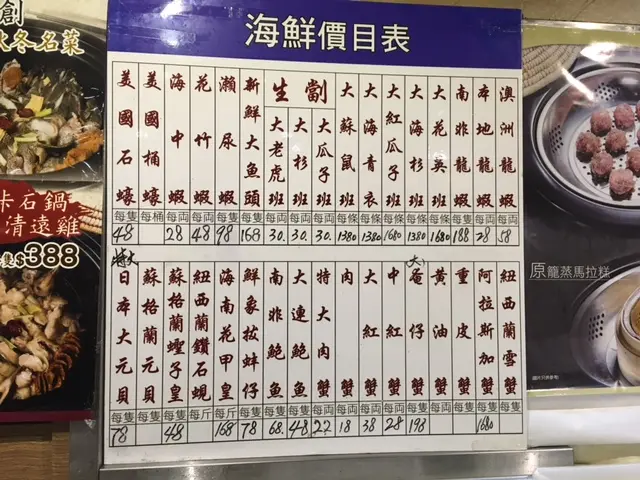 海鮮價目表
澳洲龍蝦 每両 58
本地龍蝦 每両 28
南非龍蝦 每隻 188
大花英班 每條 1680
大海杉班 每條 1380
大紅瓜子班 每條 1680
大海青衣 每條 1380
大蘇鼠班 每條 1380
生劏
大瓜子班 每両 30.
大杉班 每両 30.
大老虎班 每両 30.
新鮮大魚頭 每隻 168
瀨尿蝦 每隻 98
花竹蝦 每両 48
海中蝦 每両 28
美國桶蠔 每桶
美國石蠔 每隻 48
紐西蘭雪蟹 每両
阿拉斯加蟹 每両 1680
重皮蟹 每隻
黃油蟹 每隻
大奄仔蟹 每隻 198
中紅蟹 每両 28
大紅蟹 每両 38
肉蟹 每両 18
特大肉蟹 每両 22
大連鮑魚 每隻 48
南非鮑魚 每隻 68.
鮮象拔蚌仔 每隻 78
海南花甲皇 每斤 168
紐西蘭鑽石蜆 每斤
蘇格蘭蟶子皇 每隻 48
蘇格蘭元貝 每隻
特大日本大元貝 每隻 78
創
秋冬名菜
石鍋
清遠雞
每隻$388
原籠蒸馬拉糕